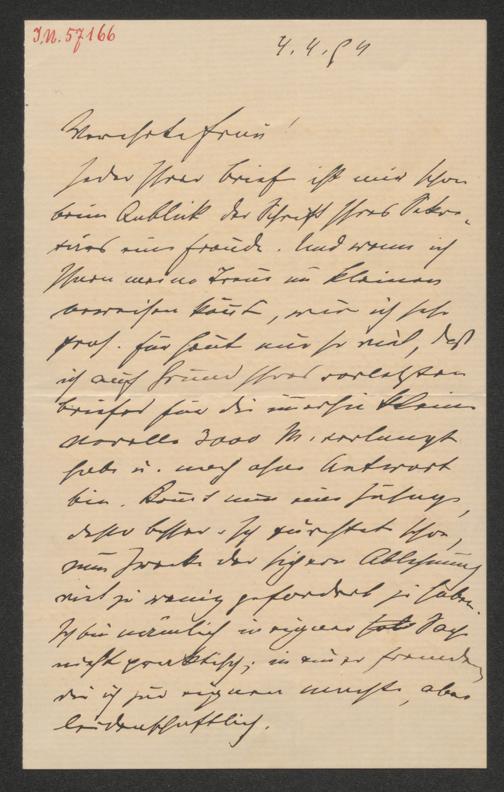 J.N. 57166
4.4.94
Verehrte Frau!
Jeder Ihrer Briefe ist mir schon
beim Anblick der Schrift Ihres Sekre-
tärs eine Freude. Und wenn ich
Ihnen meine Treue im Kleinen
beweisen könnt, wär ich sehr
froh. Für heut nur so viel, daß
ich auf Grund Ihres vorletzten
Briefes für die kleine
Novelle 3000 M. verlangt
habe u. noch ohne Antwort
bin. Kommt nun eine Zusage,
desto besser. Ich fürchtet schon,
zum Zwecke der sichern Ablehnung
viel zu wenig gefordert zu haben.
Ich bin nämlich in eigener Sach
nicht praktisch; in einer fremden,
die ich zur eigenen machte, aber
leidenschaftlich.